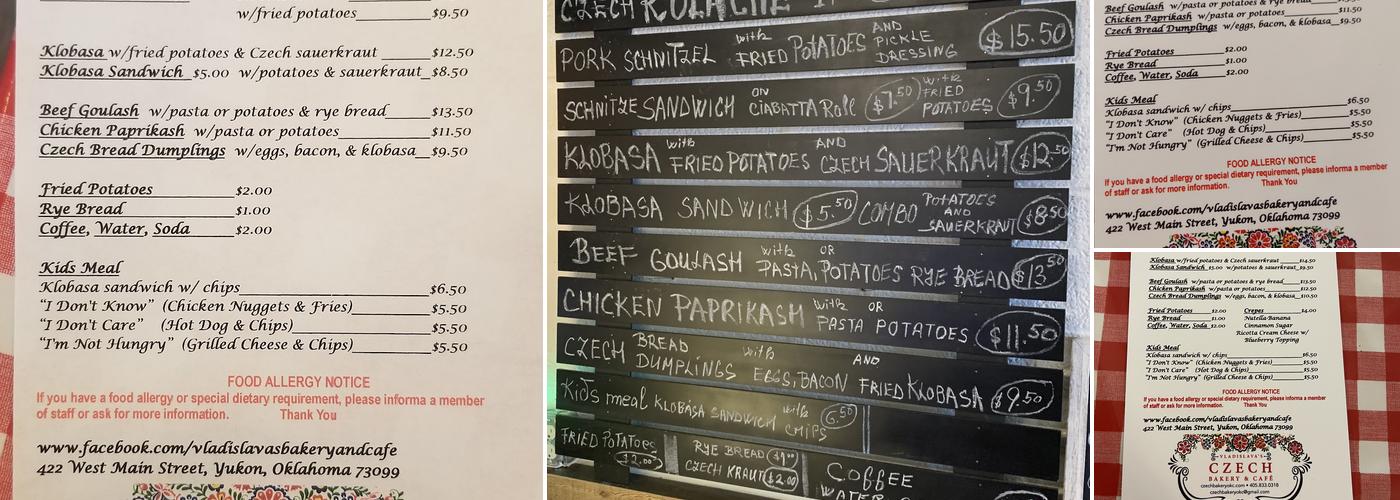 w/fried potatoes $9.50
Klobasa w/fried potatoes & Czech sauerkraut $12.50
Klobasa Sandwich $5.00 w/potatoes & sauerkraut $8.50
Beef Goulash w/pasta or potatoes & rye bread $13.50
Chicken Paprikash w/pasta or potatoes $11.50
Czech Bread Dumplings w/eggs, bacon, & klobasa $9.50
Fried Potatoes $2.00
Rye Bread $1.00
Coffee, Water, Soda $2.00
Kids Meal
Klobasa sandwich w/ chips $6.50
"I Don't Know" (Chicken Nuggets & Fries) $5.50
"I Don't Care" (Hot Dog & Chips) $5.50
"I'm Not Hungry" (Grilled Cheese & Chips) $5.50
FOOD ALLERGY NOTICE
If you have a food allergy or special dietary requirement, please informa a member
of staff or ask for more information. Thank You
www.facebook.com/vladislavasbakeryandcafe
422 West Main Street, Yukon, Oklahoma 73099
CZECH KOLACHE
PORK SCHNITZEL with FRIED POTATOES AND PICKLE DRESSING $15.50
SCHNITZE SANDWICH ON CIABATTA Roll $7.50 with FRIED POTATOES $9.50
KLOBASA with FRIED POTATOES AND CZECH SAUERKRAUT $12.50
KLOBASA SANDWICH $5.50 COMBO POTATOES AND SAUERKRAUT $8.50
BEEF GOULASH with PASTA, OR POTATOES RYE BREAD $13.50
CHICKEN PAPRIKASH with PASTA OR POTATOES $11.50
CZECH BREAD DUMPLINGS with EGGS, BACON AND FRIED KLOBASA $9.50
Kids meal KLOBASA SANDWICH with CHIPS 6.50
FRIED POTATOES $2.00 RYE BREAD $1.00
CZECH KRAUT $2.00 COFFEE
WATER
Beef Goulash w/pasta or potatoes & rye bread
Chicken Paprikash w/pasta or potatoes $11.50
Czech Bread Dumplings w/eggs, bacon, & klobasa $9.50
Fried Potatoes $2.00
Rye Bread $1.00
Coffee, Water, Soda $2.00
Kids Meal
Klobasa sandwich w/ chips $6.50
"I Don't Know" (Chicken Nuggets & Fries) $5.50
"I Don't Care" (Hot Dog & Chips) $5.50
"I'm Not Hungry" (Grilled Cheese & Chips) $5.50
FOOD ALLERGY NOTICE
If you have a food allergy or special dietary requirement, please informa a member
of staff or ask for more information. Thank You
www.facebook.com/vladislavasbakeryandcafe
422 West Main Street, Yukon, Oklahoma 73099
Klobasa w/fried potatoes & Czech sauerkraut $14.50
Klobasa Sandwich $5.00 w/potatoes & sauerkraut $9.50
Beef Goulash w/pasta or potatoes & rye bread $13.50
Chicken Paprikash w/pasta or potatoes $12.50
Czech Bread Dumplings w/eggs, bacon, & klobasa $10.50
Fried Potatoes $2.00 Crepes $4.00
Rye Bread $1.00 Nutella/Banana
Coffee, Water, Soda $2.00 Cinnamon Sugar
Ricotta Cream Cheese w/
Blueberry Topping
Kids Meal
Klobasa sandwich w/ chips $6.50
"I Don't Know" (Chicken Nuggets & Fries) $5.50
"I Don't Care" (Hot Dog & Chips) $5.50
"I'm Not Hungry" (Grilled Cheese & Chips) $5.50
FOOD ALLERGY NOTICE
If you have a food allergy or special dietary requirement, please informa a member
of staff or ask for more information. Thank You
www.facebook.com/vladislavasbakeryandcafe
422 West Main Street, Yukon, Oklahoma 73099
VLADISLAVA'S
CZECH
BAKERY & CAFÉ
czechbakeryokc.com • 405.833.0318
czechbakery@gmail.com